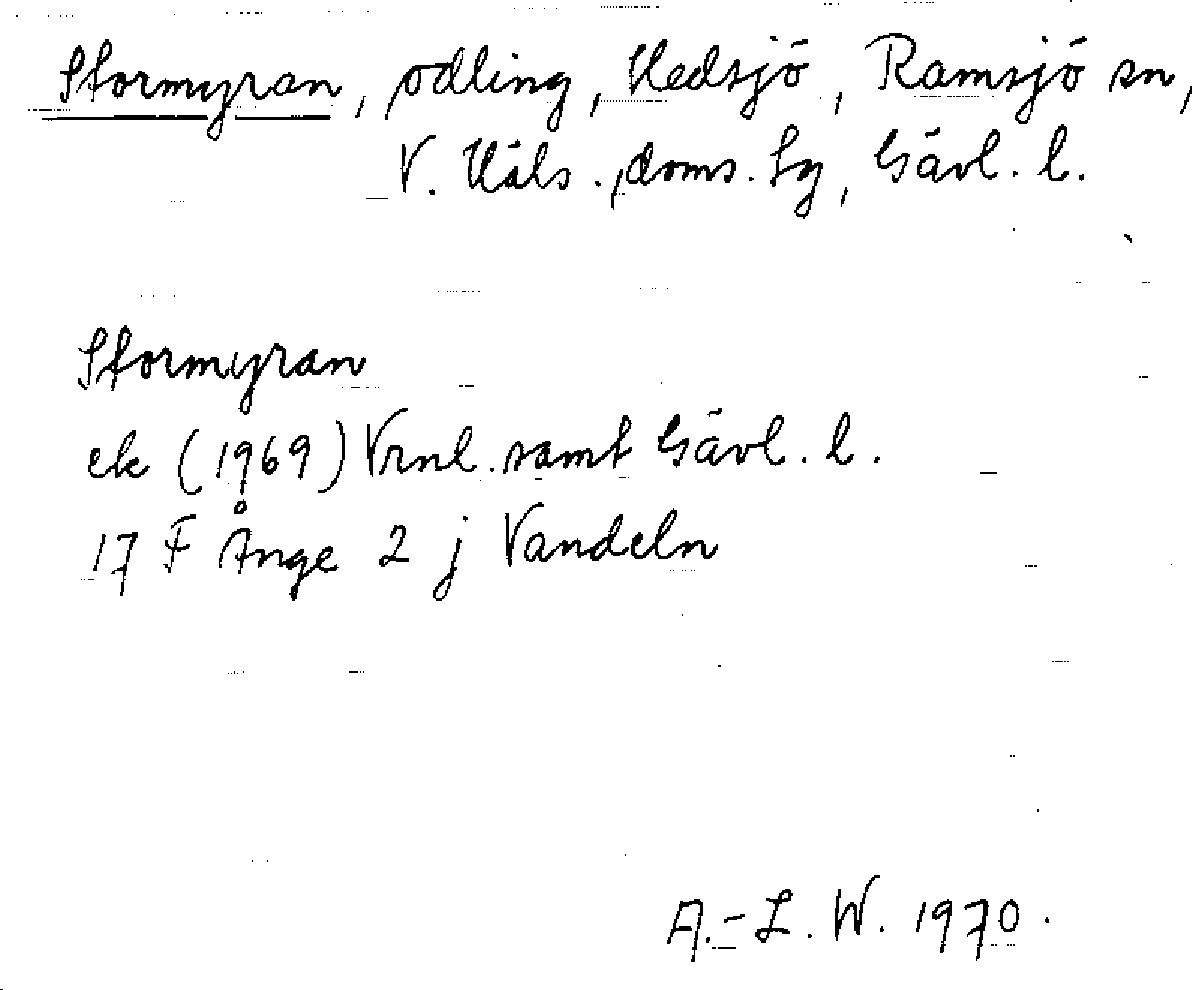 Stormyran, odling, Hedsjö, Ramsjö sn,
V. Häls., doms. Sg, Gävl. l.
Stormyran
ek (1969) Vrnl. samt Gävl. l.
17 F Ånge 2 j Vandeln
A.-L. W. 1970.